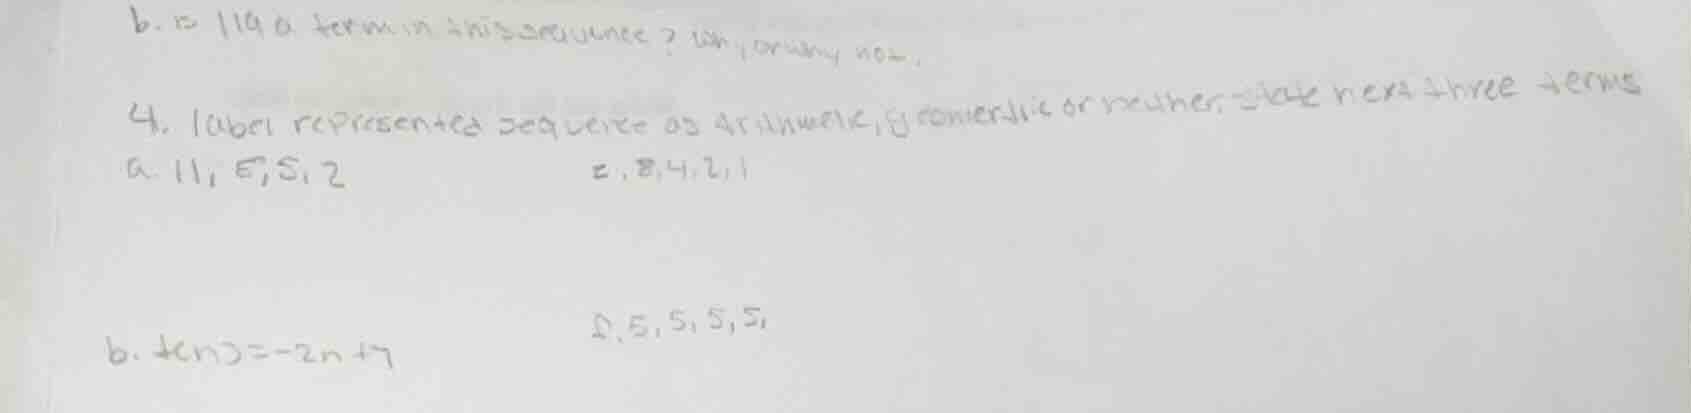 b. is 119 a term in this sequence? why, or why not.
4. label represented sequence as arithmetic, geometric or neither. state next three terms
a. 11, 8, 5, 2
e. 8, 4, 2, 1
f. 5, 5, 5, 5,
b. t(n)=-2n+7